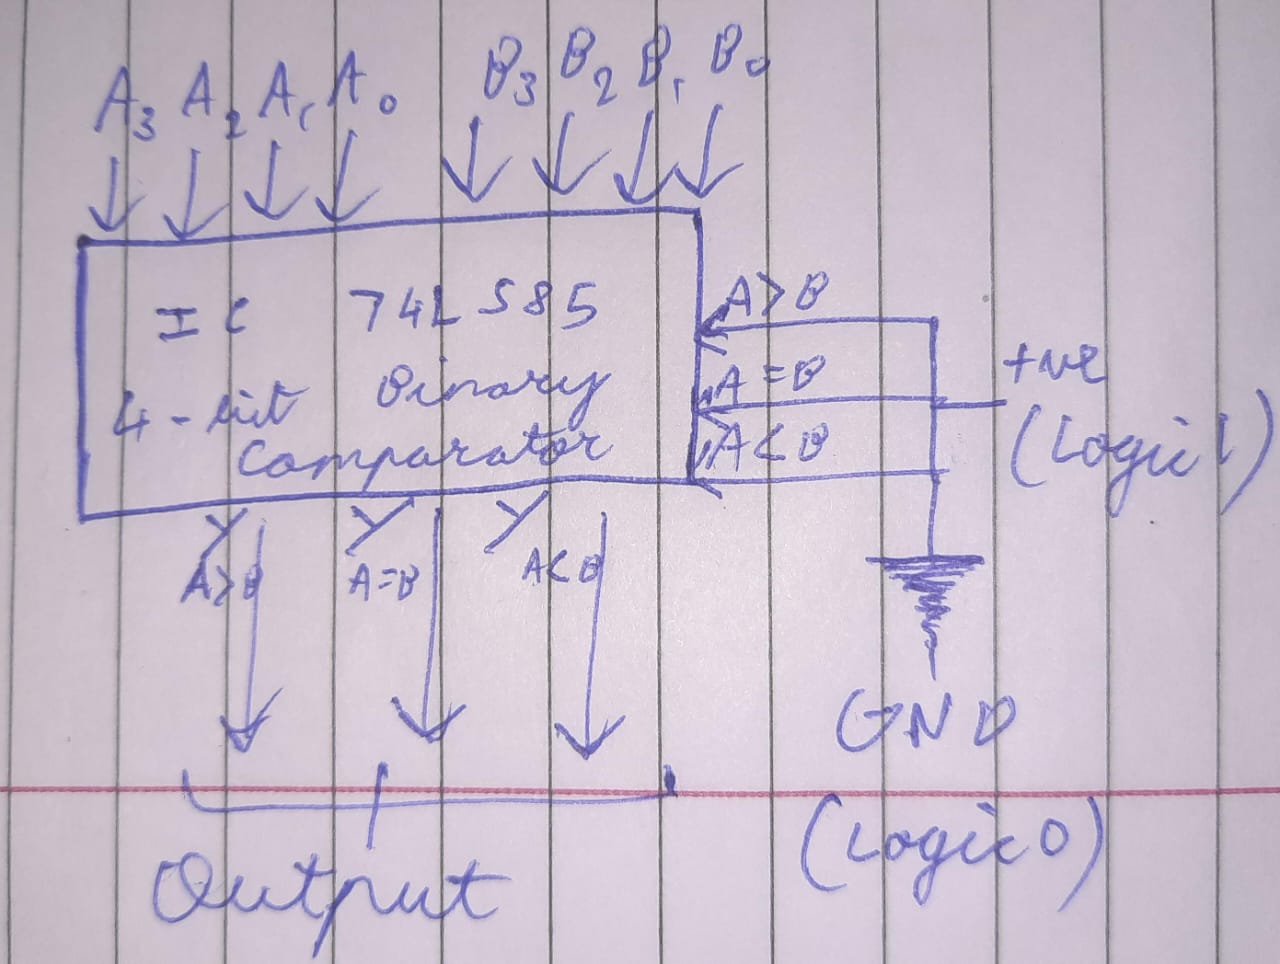 A3 A2 A1 A0 B3 B2 B1 B0
IC 74LS85
4-bit Binary
Comparator
A>B
A=B
A<B
+ve
(Logic 1)
Y A>B Y A=B Y A<B
GND
(Logic 0)
Output